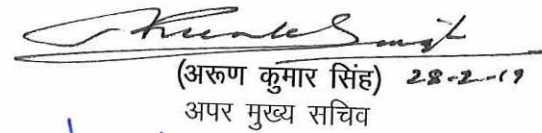 (अरूण कुमार सिंह) 28-2-19
अपर मुख्य सचिव